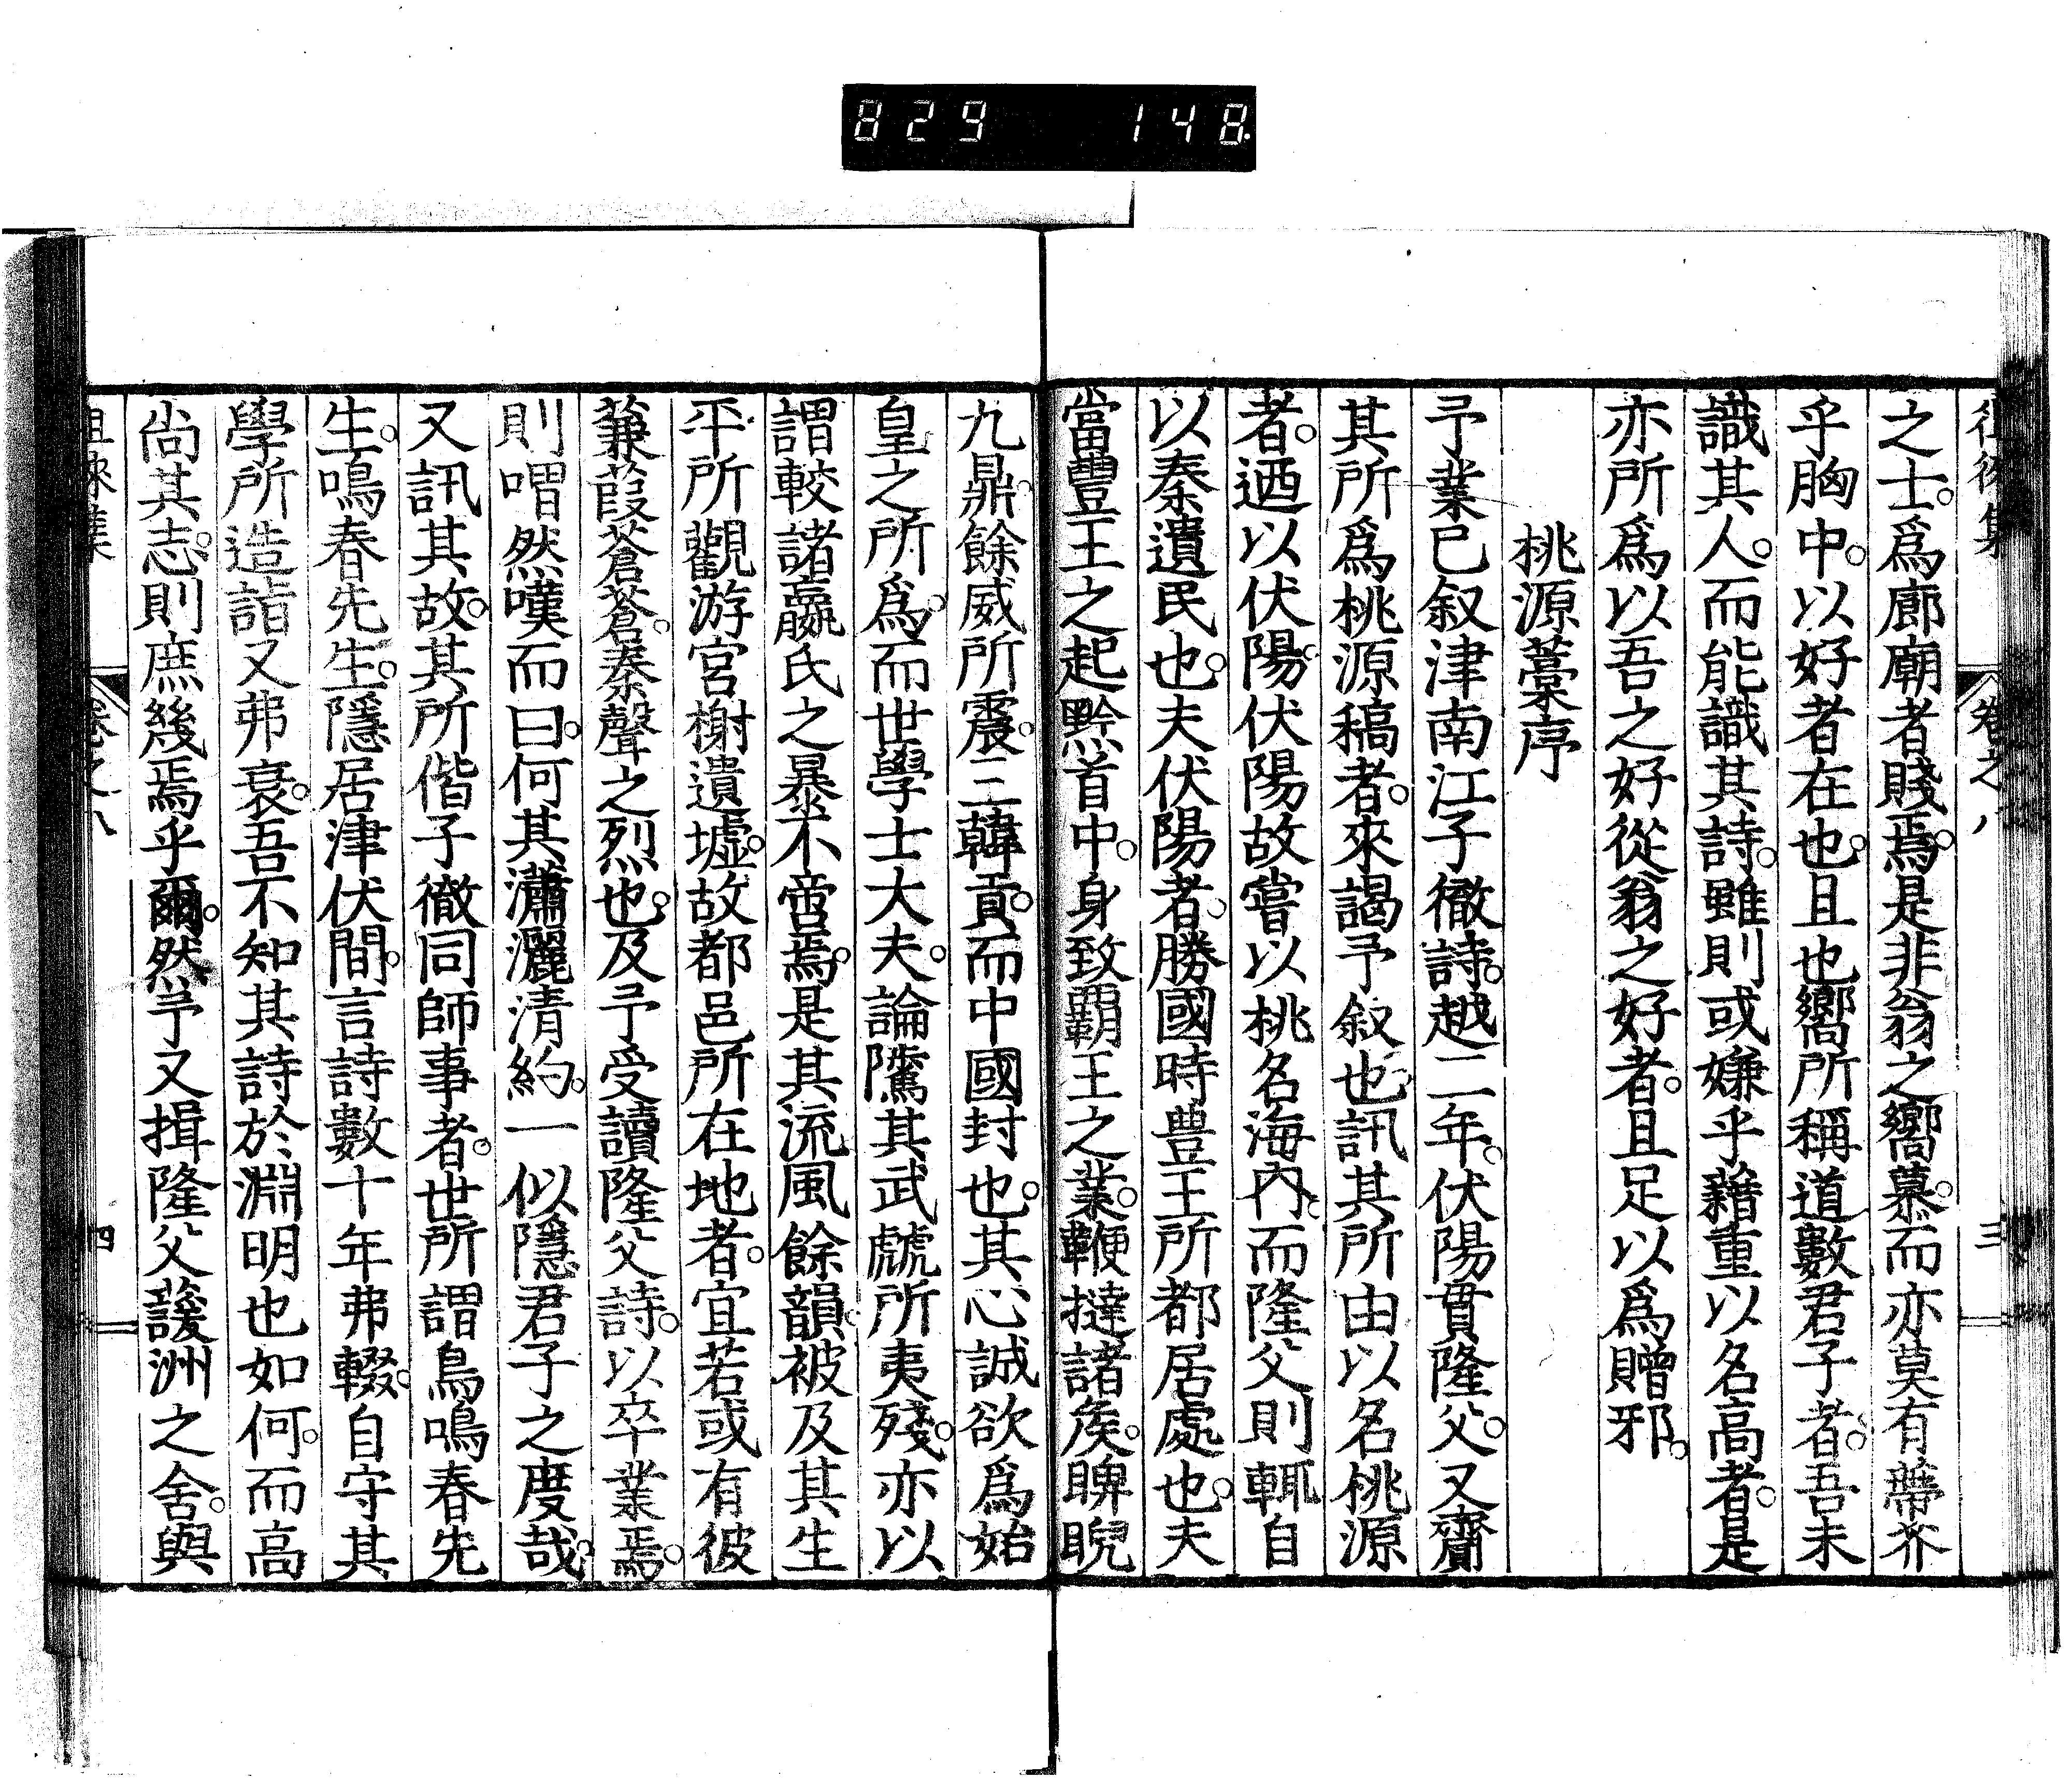 829 148
徂徠集 卷之八 三
之士。爲廊廟者賤焉。是非翁之嚮慕。而亦莫有蔕芥
乎胸中。以好者在也。且也嚮所稱道數君子者。吾未
識其人。而能識其詩。雖則或嫌乎藉重以名高者。是
亦所爲以吾之好從翁之好者。且足以爲贈邪。
桃源藁序
予業已叙津南江子徹詩。越二年。伏陽貫隆父。又齎
其所爲桃源稿者。來謁予叙也。訊其所由以名桃源
者。迺以伏陽。伏陽故嘗以桃名海內。而隆父則輒自
以秦遺民也。夫伏陽者。勝國時豊王所都居處也。夫
當豊王之起黔首中。身致覇王之業。鞭撻諸矦。睥睨
九鼎。餘威所震。三韓貢。而中國封也。其心誠欲爲始
皇之所爲。而世學士大夫。論隲其武虣所夷殘。亦以
謂較諸嬴氏之暴不啻焉。是其流風餘韻。被及其生
平所觀游宮榭遺墟。故都邑所在地者。宜若或有彼
蒹葭蒼蒼。秦聲之烈也。及予受讀隆父詩。以卒業焉。
則喟然嘆而曰。何其瀟灑清約。一似隱君子之度哉。
又訊其故。其所偕子徹同師事者。世所謂鳥鳴春先
生。鳴春先生。隱居津伏間。言詩數十年弗輟。自守其
學所造詣又弗衰。吾不知其詩於淵明也如何。而高
尚其志。則庶幾焉乎爾。然予又揖隆父諼洲之舍。與
徂徠集 卷之八 四